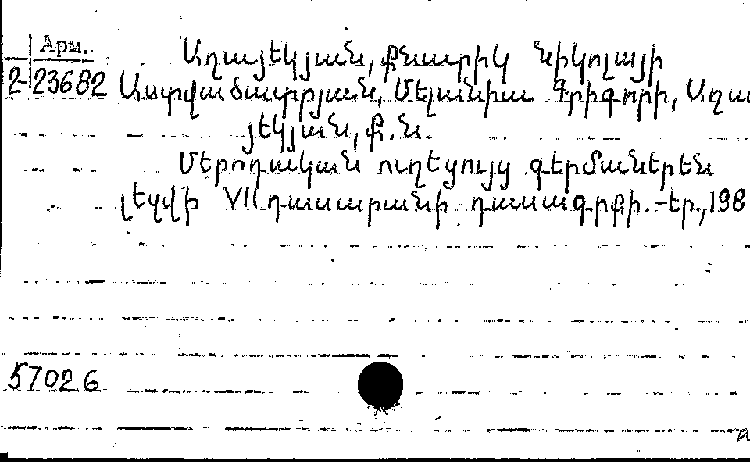 Арм.
2-23682
Աղայեկյան, Քնարիկ Նիկոլայի
Աստվածատրյան, Մելանիա Գրիգորի, Աղա
յեկյան, Ք.Ն.
Մեթոդական ուղեցույց գերմաներեն
լեզվի VII դասարանի դասագրքի.-Եր., 198
57026